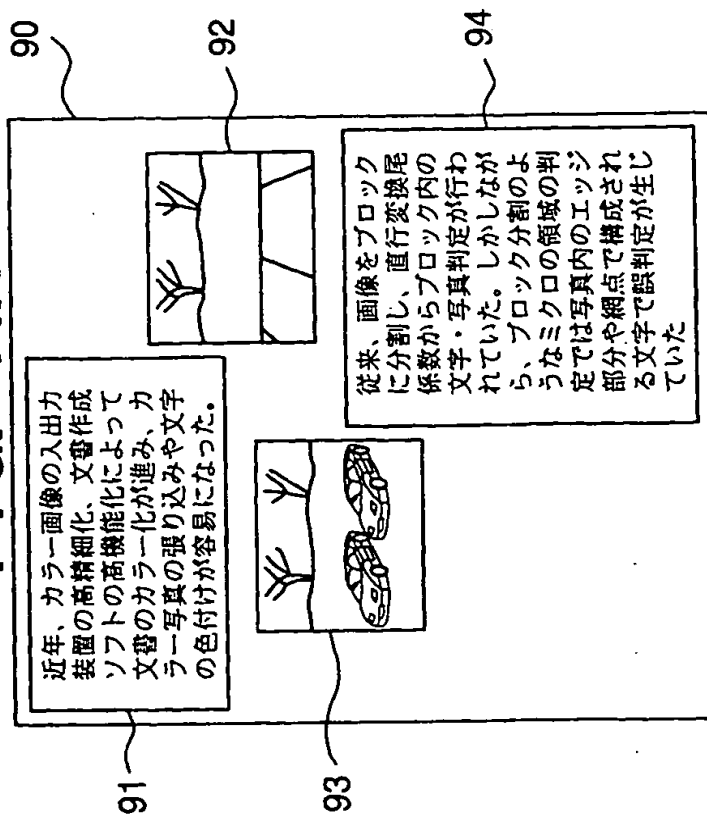 90
91
近年、カラー画像の入出力
装置の高精細化、文書作成
ソフトの高機能化によって
文書のカラー化が進み、カ
ラー写真の張り込みや文字
の色付けが容易になった。
92
93
従来、画像をブロック
に分割し、直行変換尾
係数からブロック内の
文字・写真判定が行わ
れていた。しかしなが
ら、ブロック分割のよ
うなミクロの領域の判
定では写真内のエッジ
部分や網点で構成され
る文字で誤判定が生じ
ていた
94